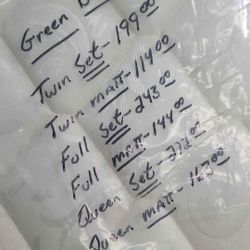 Green
Twin Set- 199.00
Twin matt- 114.00
Full Set- 243.00
Full matt- 144.00
Queen Set-
Queen matt-